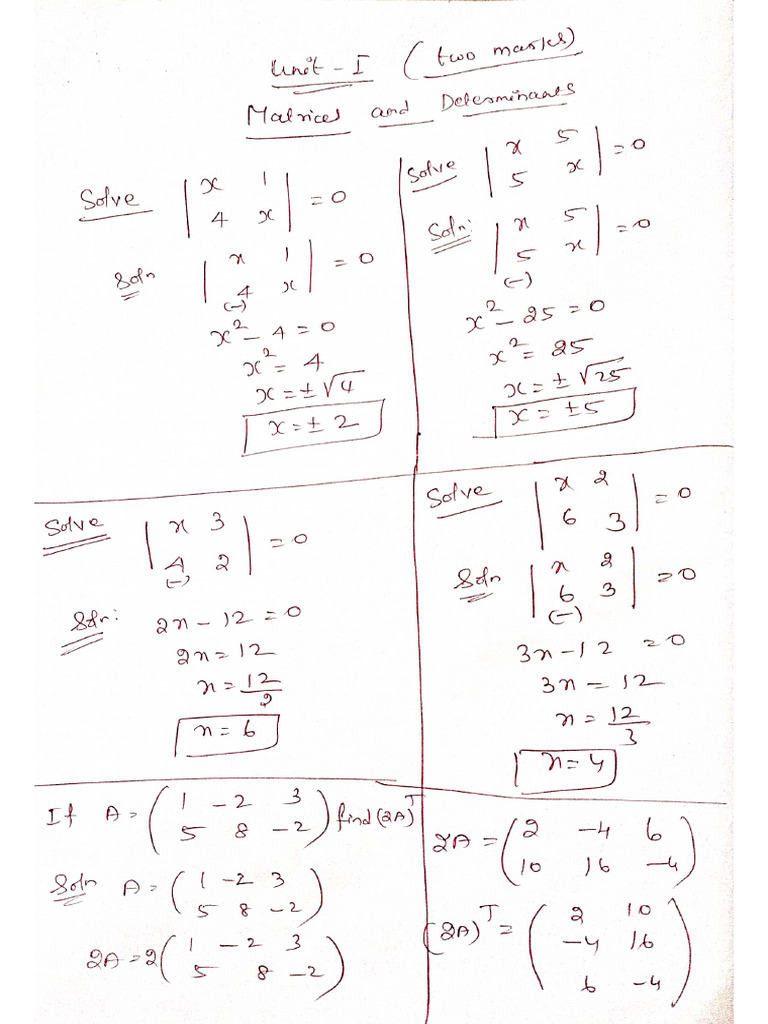 Unit - I (two marks)
Matrices and Determinants
Solve | x 1 | = 0
| 4 x |
Soln | x 1 | = 0
| 4 x |
(-)
x² - 4 = 0
x² = 4
x = ± √4
x = ± 2
Solve | x 5 | = 0
| 5 x |
Soln: | x 5 | = 0
| 5 x |
(-)
x² - 25 = 0
x² = 25
x = ± √25
x = ± 5
Solve | x 3 | = 0
| 4 2 |
(-)
Soln: 2x - 12 = 0
2x = 12
x = 12/2
x = 6
Solve | x 2 | = 0
| 6 3 |
Soln | x 2 | = 0
| 6 3 |
(-)
3x - 12 = 0
3x = 12
x = 12/3
x = 4
If A = ( 1 -2 3 ) find (2A)ᵀ
( 5 8 -2 )
Soln A = ( 1 -2 3 )
( 5 8 -2 )
2A = 2 ( 1 -2 3 )
( 5 8 -2 )
2A = ( 2 -4 6 )
( 10 16 -4 )
(2A)ᵀ = ( 2 10 )
( -4 16 )
( 6 -4 )